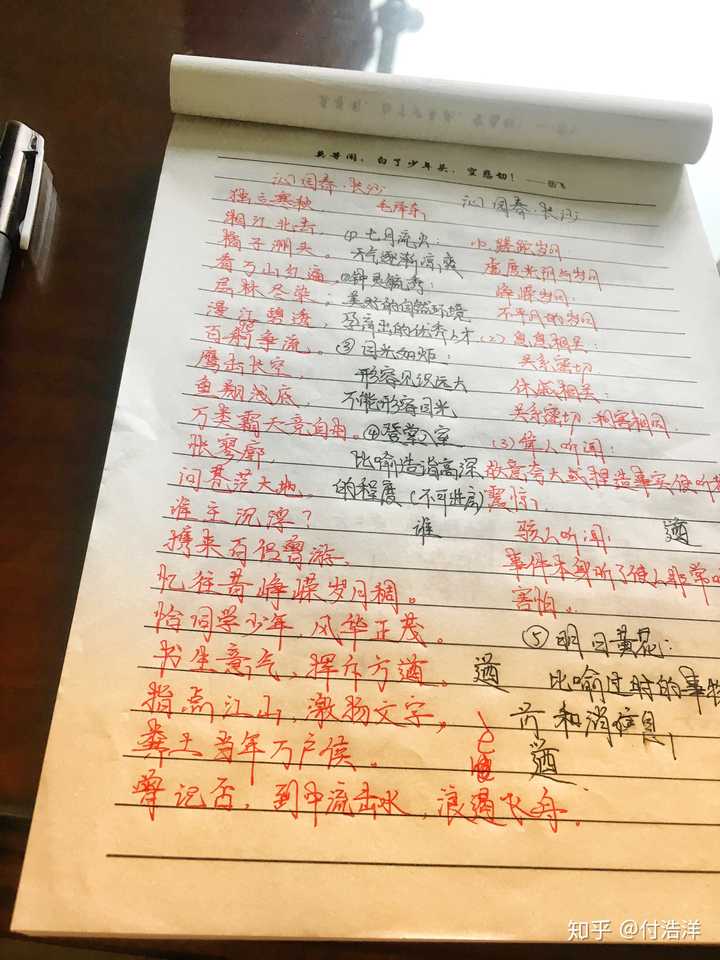 莫等闲，白了少年头，空悲切！——岳飞
沁园春·长沙
毛泽东
沁园春·长沙
独立寒秋，
湘江北去，
橘子洲头。
看万山红遍，
层林尽染；
漫江碧透，
百舸争流。
鹰击长空，
鱼翔浅底，
万类霜天竞自由。
怅寥廓，
问苍茫大地，
谁主沉浮？
携来百侣曾游，
忆往昔峥嵘岁月稠。
恰同学少年，风华正茂。
书生意气，挥斥方遒。
指点江山，激扬文字，
粪土当年万户侯。
曾记否，到中流击水，浪遏飞舟。
①七月流火：
天气逐渐凉爽
②钟灵毓秀：
美好的自然环境
孕育出的优秀人才
③目光如炬：
形容见识远大
不能形容目光
④登堂入室
比喻造诣高深
的程度
谁
(1)蹉跎岁月
虚度光阴的岁月
峥嵘岁月：
不平凡的岁月
(2)息息相关：
关系密切
休戚相关：
关系密切，利害相同
(3)耸人听闻：
故意夸大或捏造事实使听
震惊
骇人听闻：
遒
害怕。
⑤明日黄花：
比喻过时的事物
和消息
遒
遒
知乎 @付浩洋